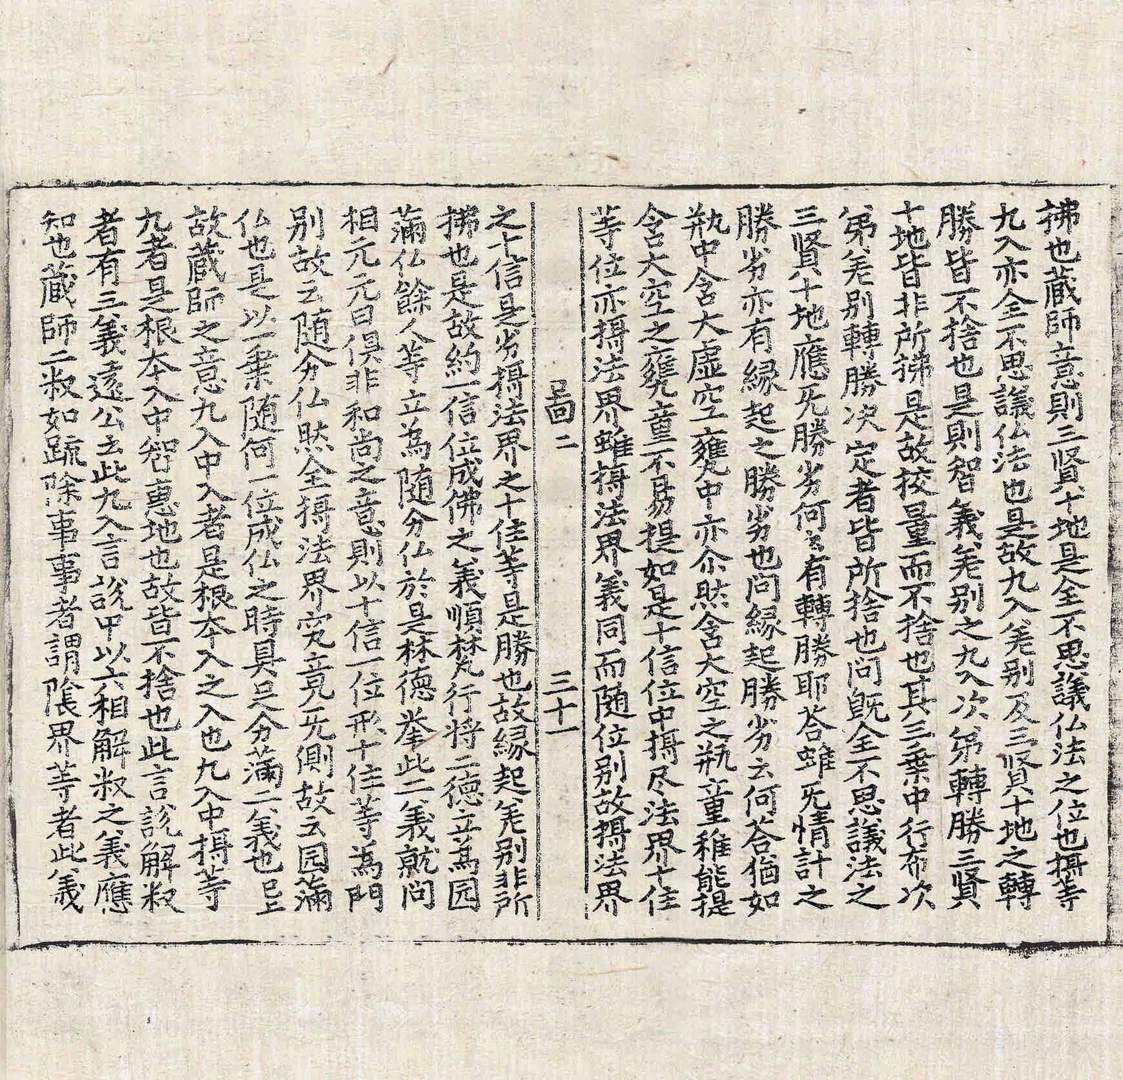 拂也藏師意則三賢十地是全不思議仏法之位也攝等
九入亦全不思議仏法也是故九入差别及三賢十地之轉
勝皆不捨也是則智義差别之九入次第轉勝三賢
十地皆非所拂是故挍量而不捨也其三乗中行布次
第差别轉勝次定者皆所捨也问既全不思議法之
三賢十地應旡勝劣何云有轉勝耶荅雖旡情計之
勝劣亦有縁起之勝劣也问縁起勝劣云何荅猶如
瓶中含大虛空甕中亦尒然含大空之瓶童稚能提
含大空之甕童不易提如是十信位中攝尽法界十住
等位亦攝法界雖攝法界義同而随位别故攝法界
啚二 三十一
之十信是劣攝法界之十住等是勝也故縁起差别非所
拂也是故約一信位成佛之義順梵行将二德立為园
滿仏餘人等立為随分仏於是林德挙此二義就问
相元元曰俱非和尚之意則以十信一位形十住等為門
别故云随分仏然全攝法界究竟旡側故云园滿
仏也是以一乗随何一位成仏之時具足分滿二義也已上
故藏師之意九入中入者是根本入之入也九入中攝等
九者是根本入中智恵地也故皆不捨也此言說解㪅
者有三義遠公云此九入言說中以六相解㪅之義應
知也藏師二㪅如䟽除事事者謂陰界等者此義